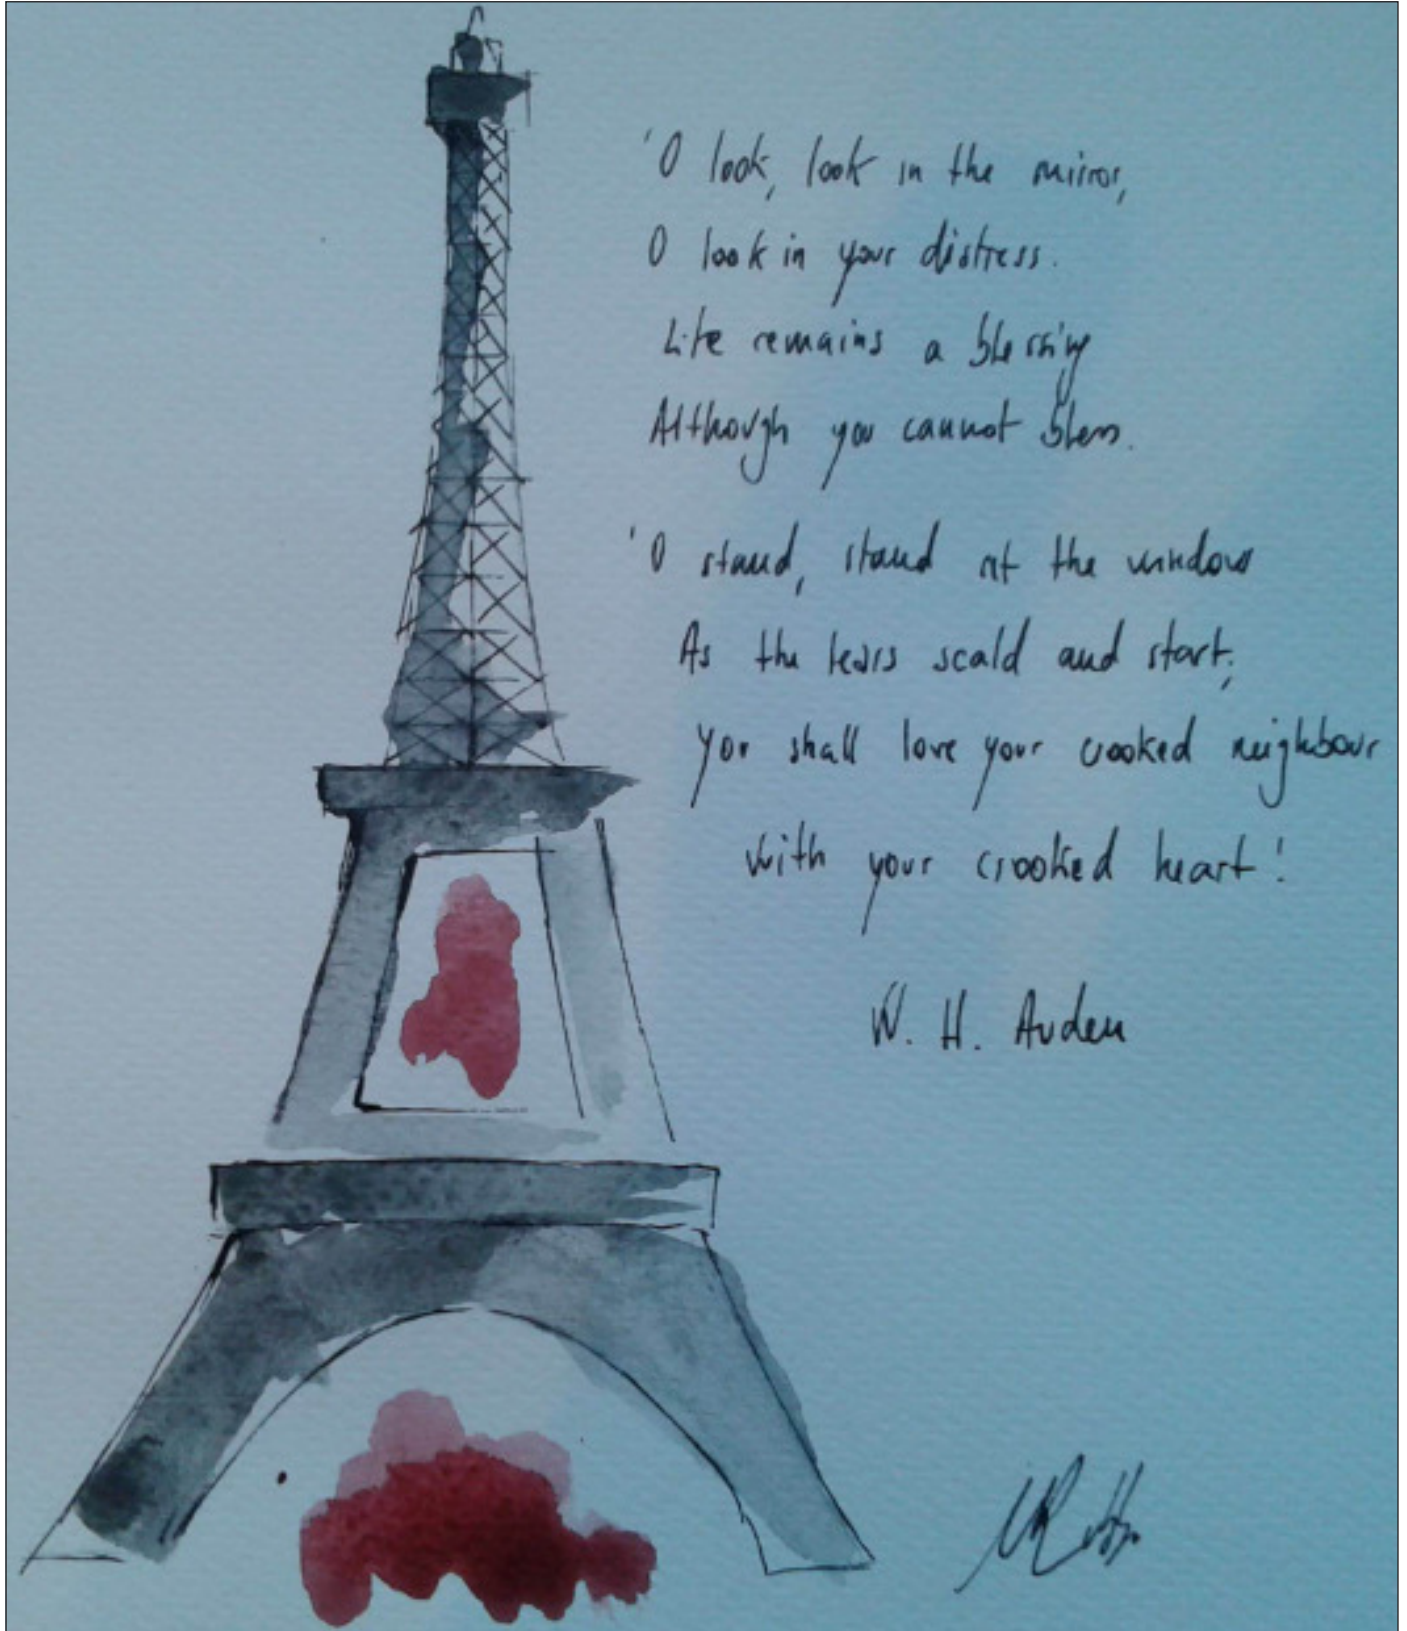 'O look, look in the mirror,
O look in your distress.
Life remains a blessing
Although you cannot bless.
'O stand, stand at the window
As the tears scald and start;
You shall love your crooked neighbour
With your crooked heart!
W. H. Auden